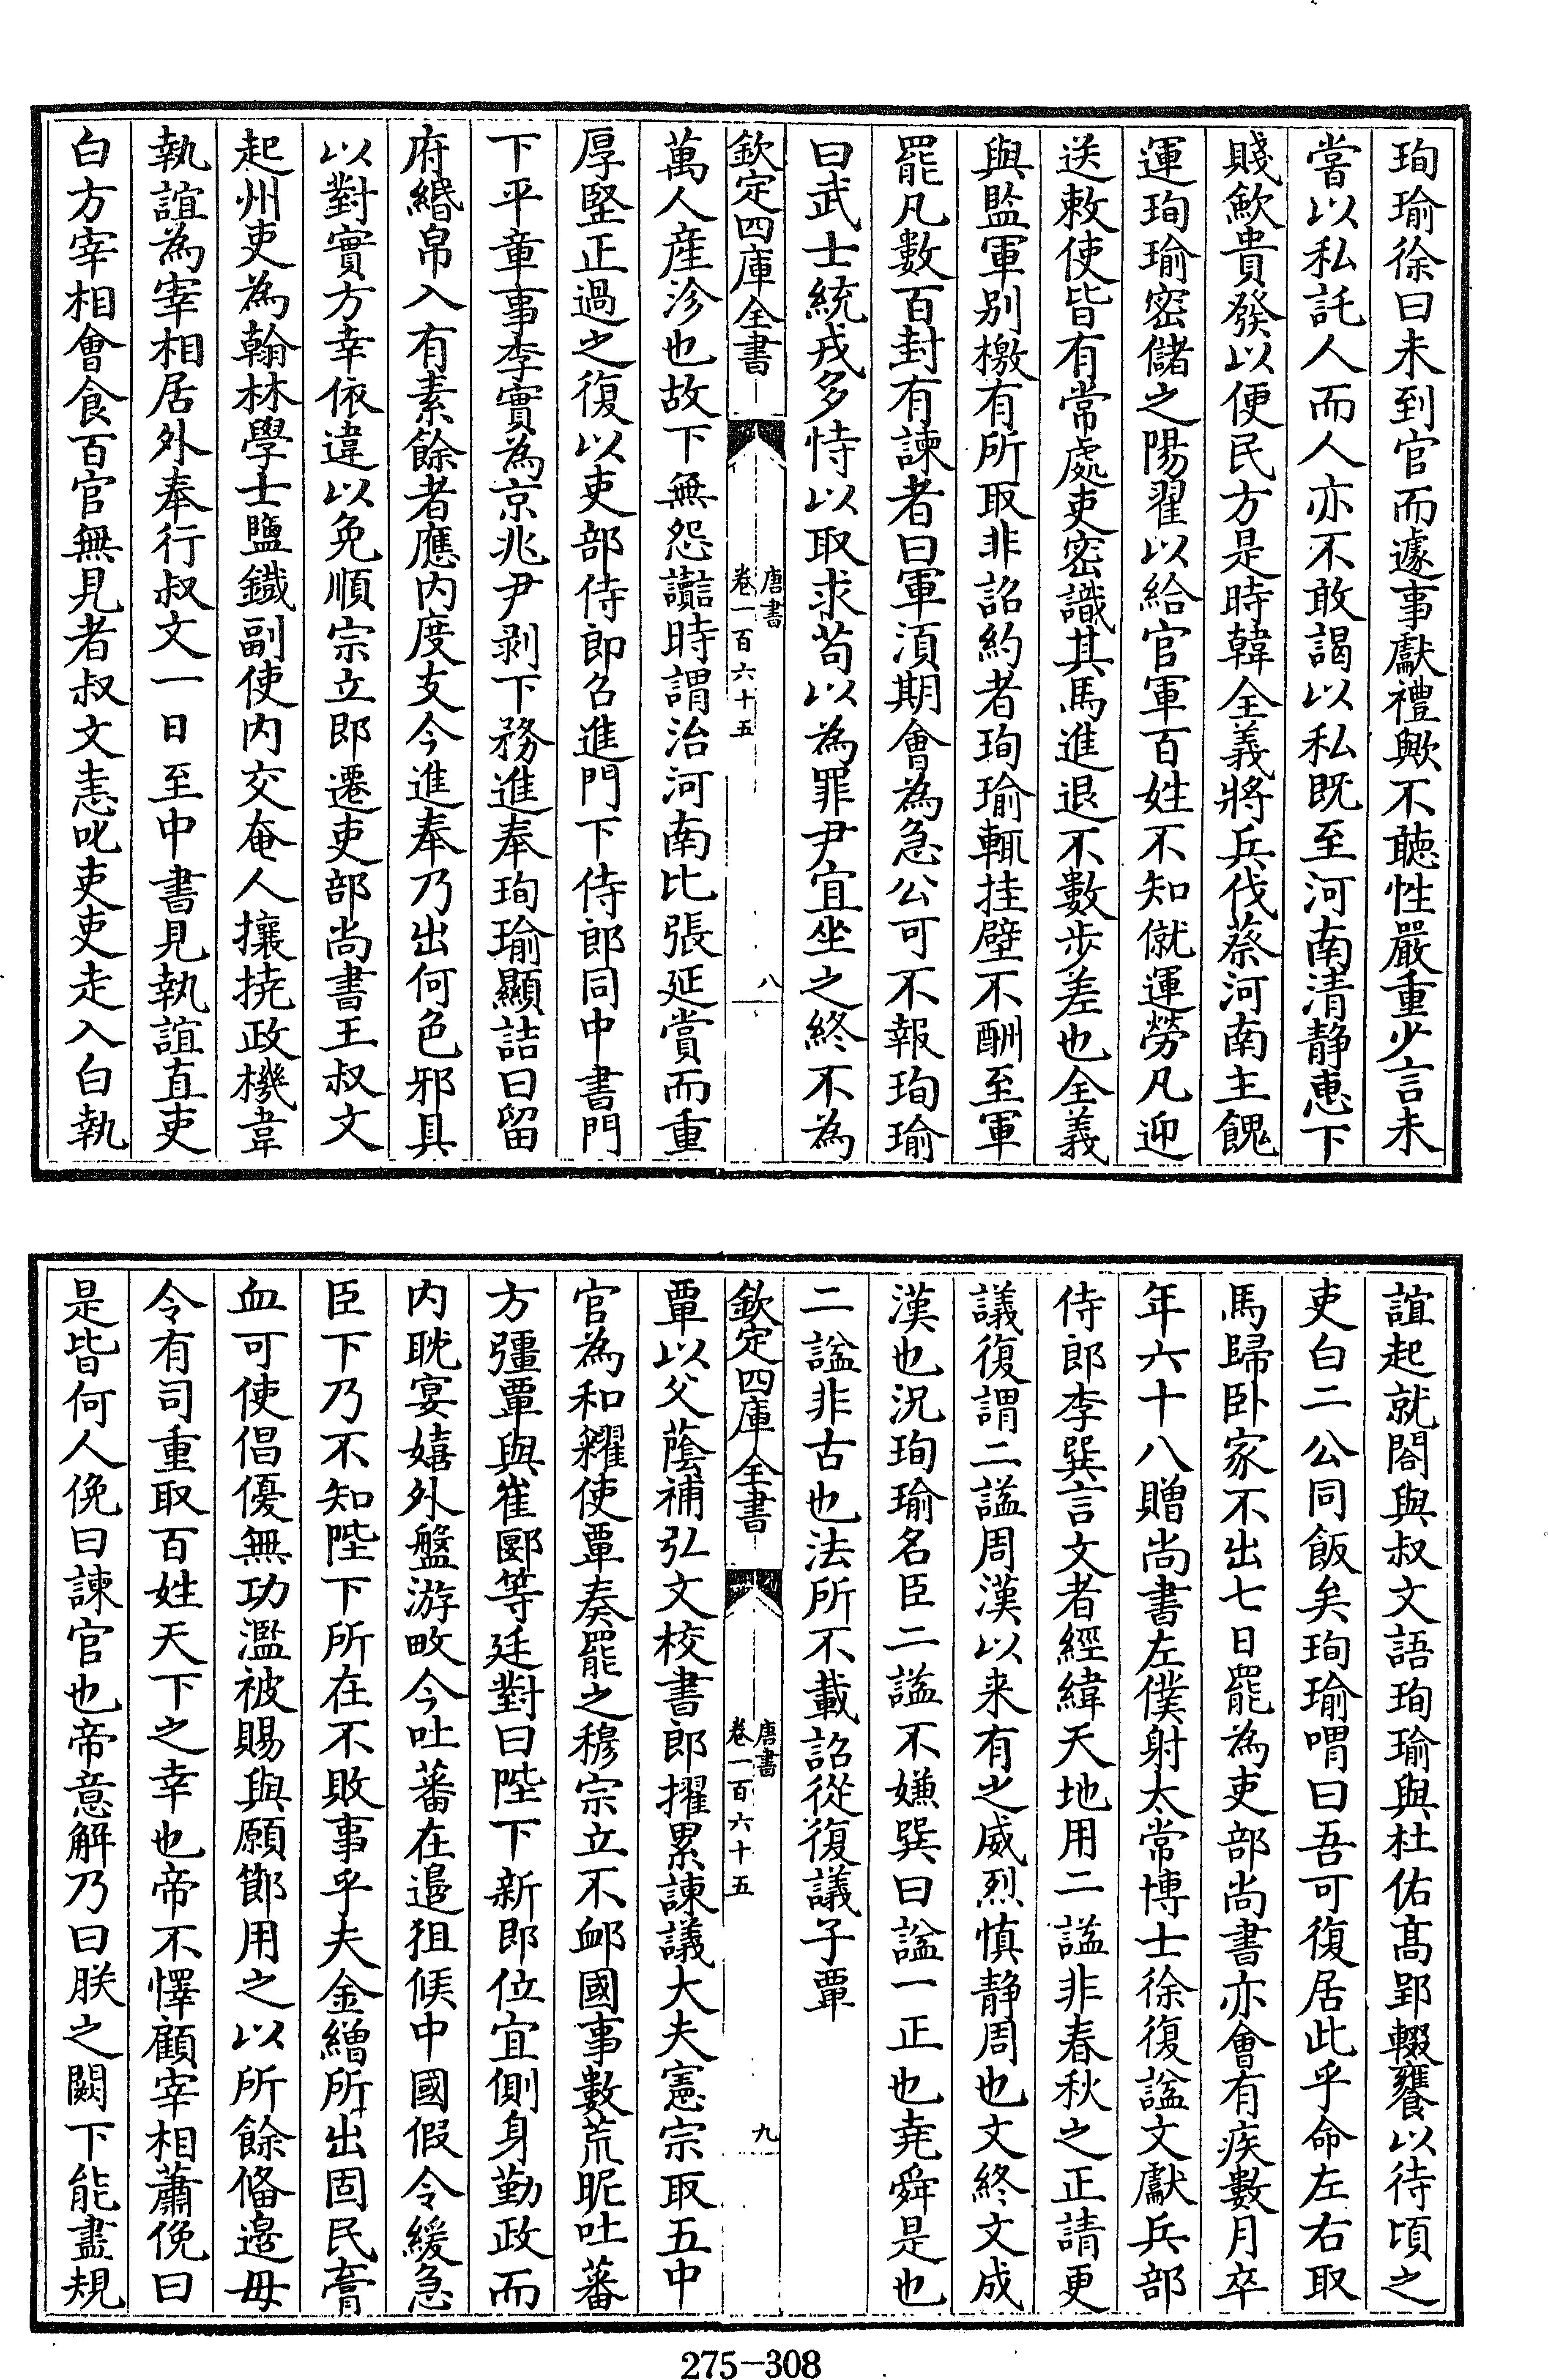 珣瑜徐曰未到官而遽事獻禮歟不聴性嚴重少言未
嘗以私託人而人亦不敢謁以私既至河南清静惠下
賤歛貴發以便民方是時韓全義將兵伐蔡河南主餽
運珣瑜密儲之陽翟以給官軍百姓不知僦運勞凡迎
送敕使皆有常處吏密識其馬進退不數步差也全義
與監軍别檄有所取非詔約者珣瑜輒挂壁不酬至軍
罷凡數百封有諫者曰軍湏期會為急公可不報珣瑜
曰武士統戎多恃以取求苟以為罪尹宜坐之終不為
欽定四庫全書
唐書
卷一百六十五
八
萬人産沴也故下無怨讟時謂治河南比張延賞而重
厚堅正過之復以吏部侍郎召進門下侍郎同中書門
下平章事李實為京兆尹剥下務進奉珣瑜顯詰曰留
府緡帛入有素餘者應内度支今進奉乃出何色邪具
以對實方幸依違以免順宗立即遷吏部尚書王叔文
起州吏為翰林學士鹽鐵副使内交奄人攘撓政機韋
執誼為宰相居外奉行叔文一日至中書見執誼直吏
白方宰相會食百官無見者叔文恚叱吏吏走入白執
誼起就閤與叔文語珣瑜與杜佑髙郢輟饔以待頃之
吏白二公同飯矣珣瑜喟曰吾可復居此乎命左右取
馬歸卧家不出七日罷為吏部尚書亦會有疾數月卒
年六十八贈尚書左僕射太常博士徐復諡文獻兵部
侍郎李巽言文者經緯天地用二諡非春秋之正請更
議復謂二諡周漢以来有之威烈慎静周也文終文成
漢也况珣瑜名臣二諡不嫌巽曰諡一正也堯舜是也
二諡非古也法所不載詔從復議子覃
欽定四庫全書
唐書
卷一百六十五
九
覃以父蔭補弘文校書郎擢累諫議大夫憲宗取五中
官為和糴使覃奏罷之穆宗立不衈國事數荒昵吐蕃
方彊覃與崔郾等廷對曰陛下新即位宜側身勤政而
内耽宴嬉外盤游畋今吐蕃在邉狙候中國假令緩急
臣下乃不知陛下所在不敗事乎夫金繒所出固民膏
血可使倡優無功濫被賜與願節用之以所餘備邉毋
令有司重取百姓天下之幸也帝不懌顧宰相蕭俛曰
是皆何人俛曰諫官也帝意解乃曰朕之闕下能盡規
275-308